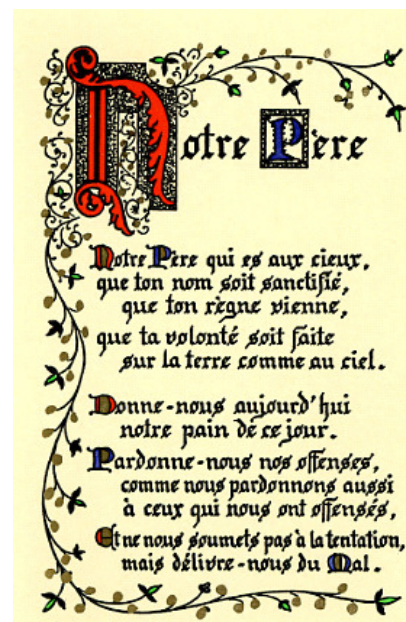 Notre Père
Notre Père qui es aux cieux,
que ton nom soit sanctifié,
que ton règne vienne,
que ta volonté soit faite
sur la terre comme au ciel.
Donne-nous aujourd'hui
notre pain de ce jour.
Pardonne-nous nos offenses,
comme nous pardonnons aussi
à ceux qui nous ont offensés,
Et ne nous soumets pas à la tentation,
mais délivre-nous du Mal.